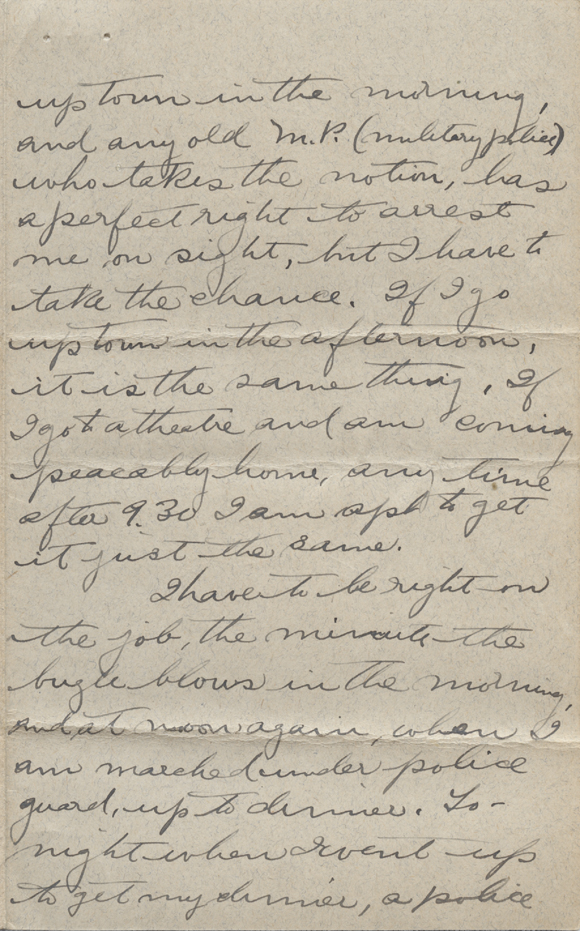 up town in the morning,
and any old M.P. (military police)
who takes the notion, has
a perfect right to arrest
me on sight, but I have to
take the chance. If I go
up town in the afternoon,
it is the same thing, If
I go to a theatre and am coming
peaceably home, any time
after 9.30 I am apt to get
it just the same.
I have to be right on
the job, the minute the
bugle blows in the morning,
and, at noon again, when I
am marched under police
guard, up to dinner. To-
night when I went up
to get my dinner, a police